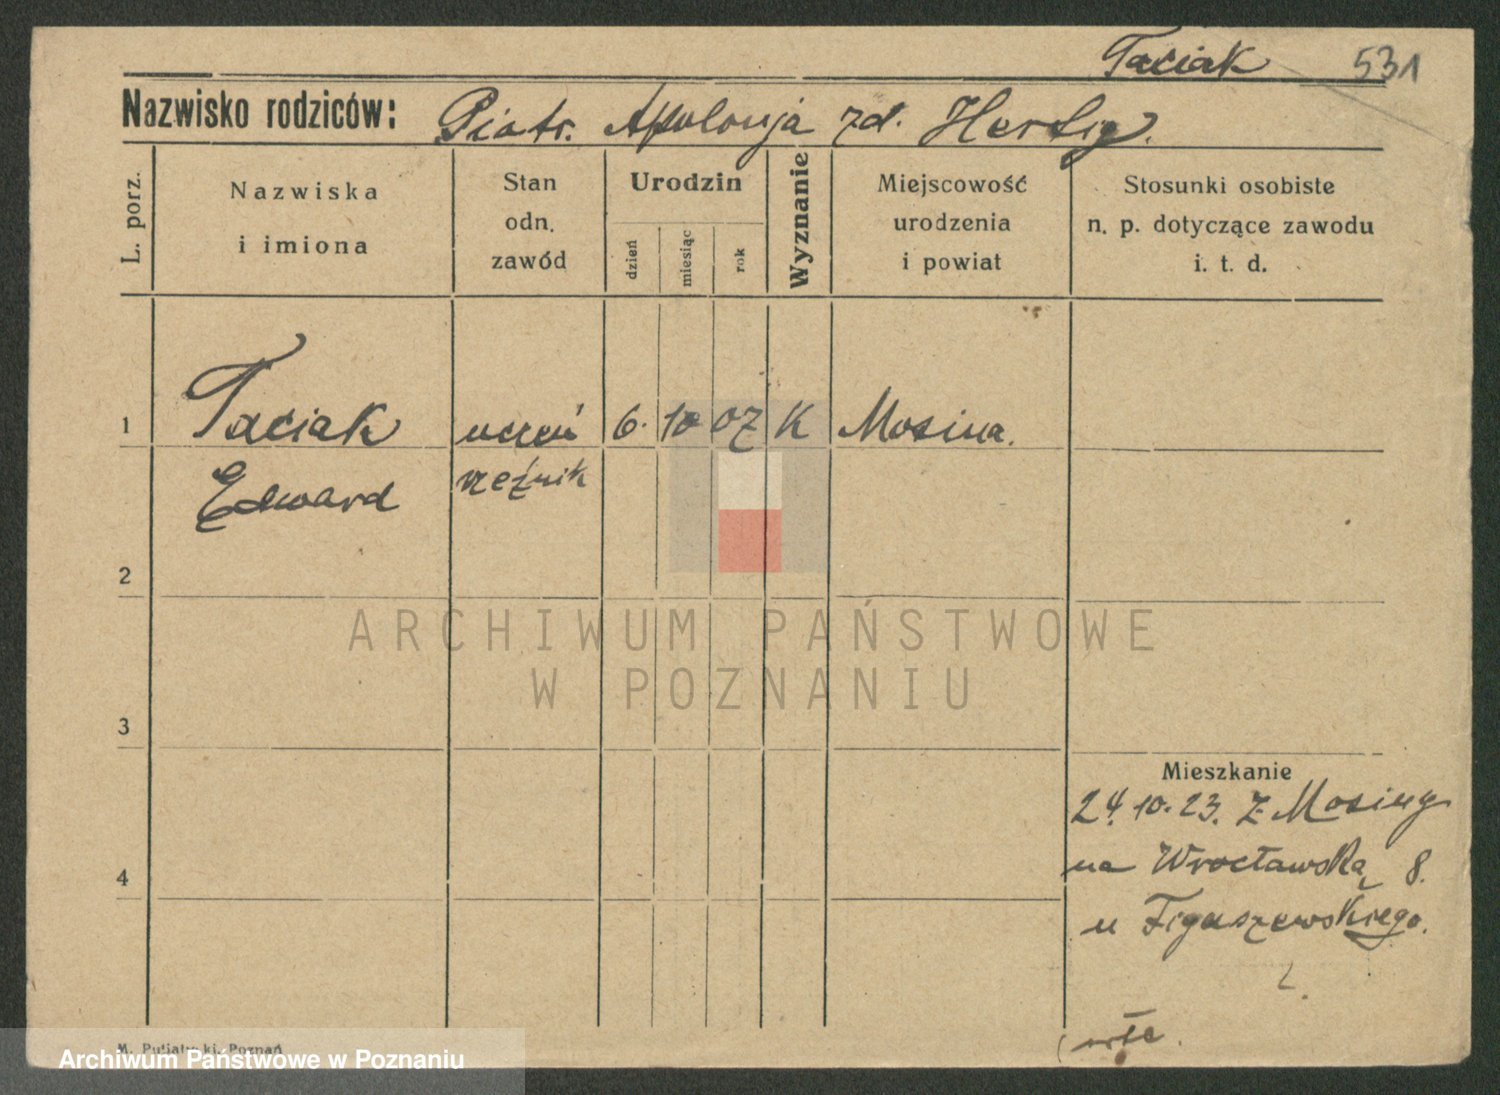 Taciak 531
Nazwisko rodziców: Piotr. Apolonja zd. Hertig.
L. porz.
Nazwiska
i imiona
Stan
odn.
zawód
Urodzin
dzień
miesiąc
rok
Wyznanie
Miejscowość
urodzenia
i powiat
Stosunki osobiste
n. p. dotyczące zawodu
i. t. d.
1 Taciak uczeń 6. 10 07 K Mosina.
Edward rzeźnik
2
ARCHIWUM PAŃSTWOWE
W POZNANIU
3
Mieszkanie
24.10.23. z Mosiny
4 na Wrocławską 8.
u Figaszewskiego.
M. Putiatycki, Poznań
Archiwum Państwowe w Poznaniu